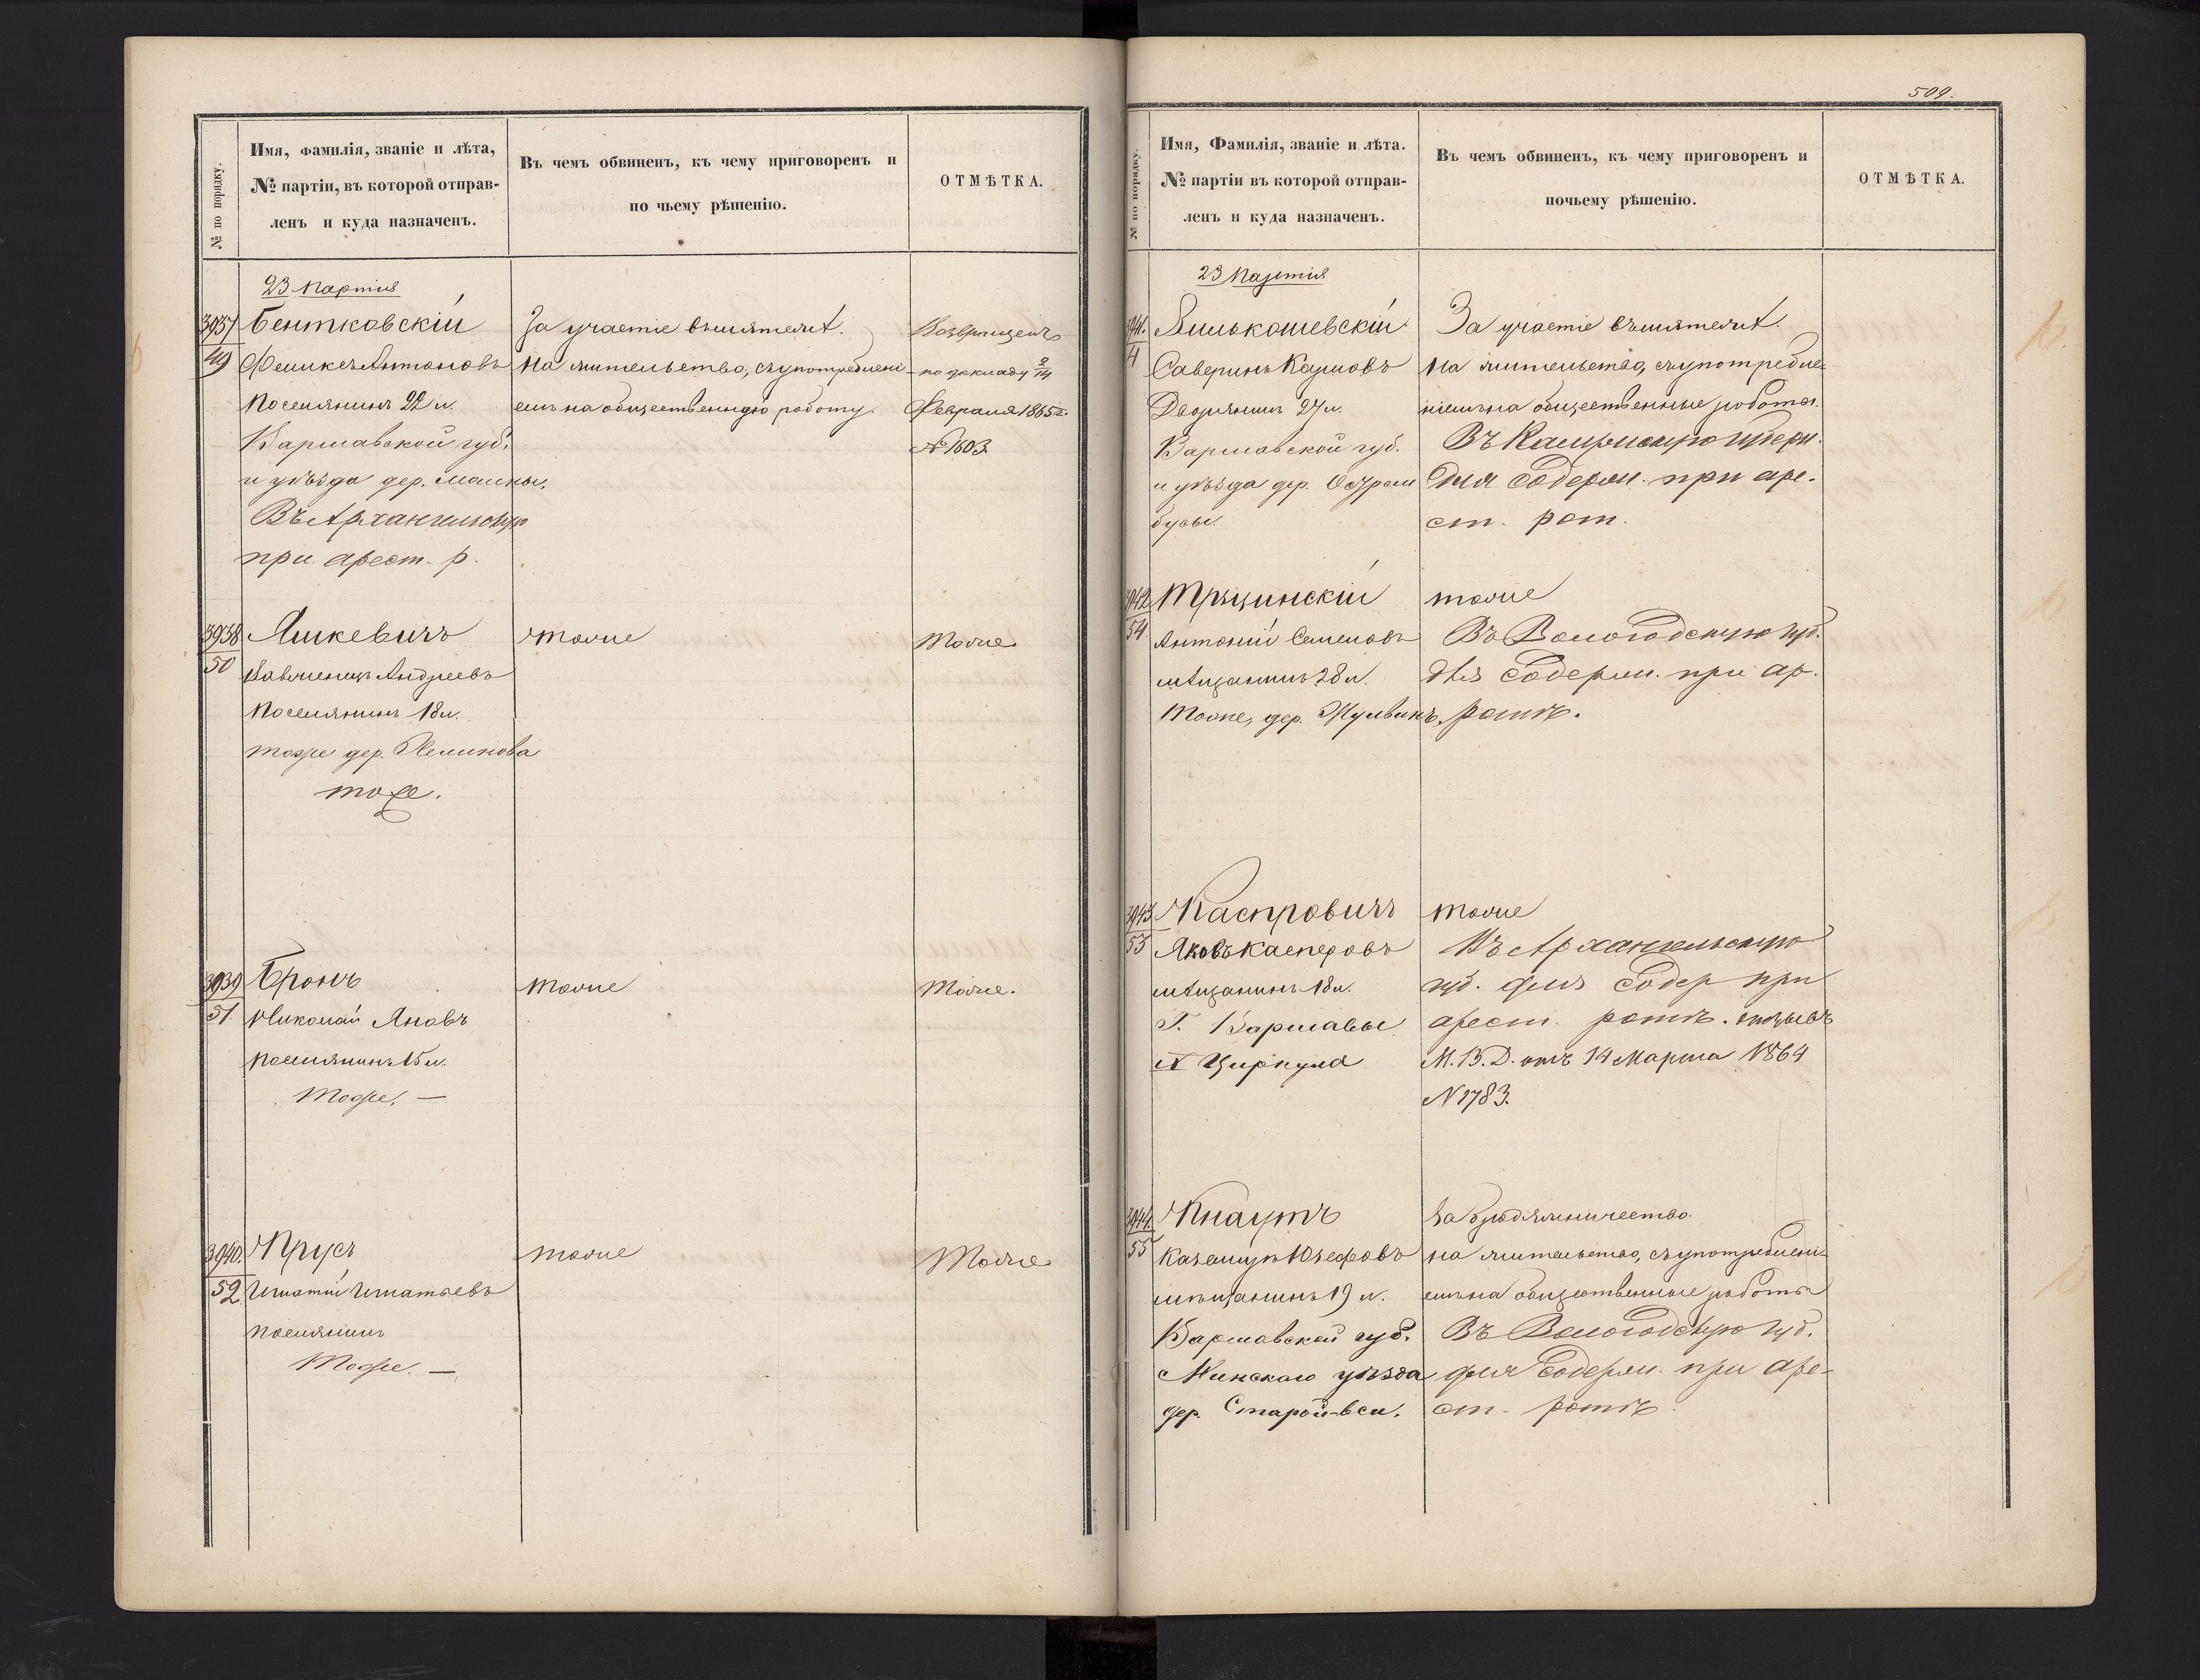 № по порядку.
Имя, фамилія, званіе и лѣта,
№ партіи, въ которой отправ-
ленъ и куда назначенъ.
Въ чемъ обвиненъ, къ чему приговоренъ и
по чьему рѣшенію.
ОТМѢТКА.
23 партія
3937
49
Бентковскій
Феликсъ Антоновъ
поселянинъ 22 л.
Варшавской губ.
и уѣзда дер.
Въ Архангельскую
при арест. р.
За участіе въ мятежѣ.
На жительство, съ употреблені-
емъ на общественную работу.
Возвращенъ
по докладу 2/14
Февраля 1865 г.
№ 1603.
3938
50
Яшкевичъ
Андреевъ
поселянинъ 18 л.
тоже дер.
тоже.
тоже
тоже
3939
51
Бронъ
Николай Яновъ
поселянинъ 15 л.
Тоже. —
тоже
тоже.
3940.
52
Прусъ
Игнатій Игнатьевъ
поселянинъ
Тоже. —
тоже
Тоже
509.
№ по порядку.
Имя, Фамилія, званіе и лѣта.
№ партіи въ которой отправ-
ленъ и куда назначенъ.
Въ чемъ обвиненъ, къ чему приговоренъ и
почьему рѣшенію.
ОТМѢТКА.
23 Партія
3941.
4
Саверинъ Карловъ
Дворянинъ 27 л.
Варшавской губ.
и уѣзда дер.
За участіе въ мятежѣ.
На жительство, съ употребле-
ніемъ на общественныя работы.
Въ губерн.
для содерж. при аре-
ст. рот.
3942
54
Антоній Семеновъ
мѣщанинъ 28 л.
Тоже, дер.
тоже
Въ Вологодскую губ.
для содерж. при ар.
ротѣ.
3943
53
Каспровичъ
Яковъ Касперовъ
мѣщанинъ 18 л.
Г. Варшавы
Циркула
тоже
Въ Архангельскую
губ. для содер при
арест. ротѣ. отзывъ
М. В. Д. отъ 14 Марта 1864
N 1783.
3944.
55
Кнаутъ
Казимиръ Юзефовъ
мѣщанинъ 19 л.
Варшавской губ.
Минскаго уѣзда
дер. Старой-вси.
За
на жительство, съ употреблені-
емъ на общественныя работы
Въ Вологодскую губ.
для содерж. при аре-
ст. ротѣ.